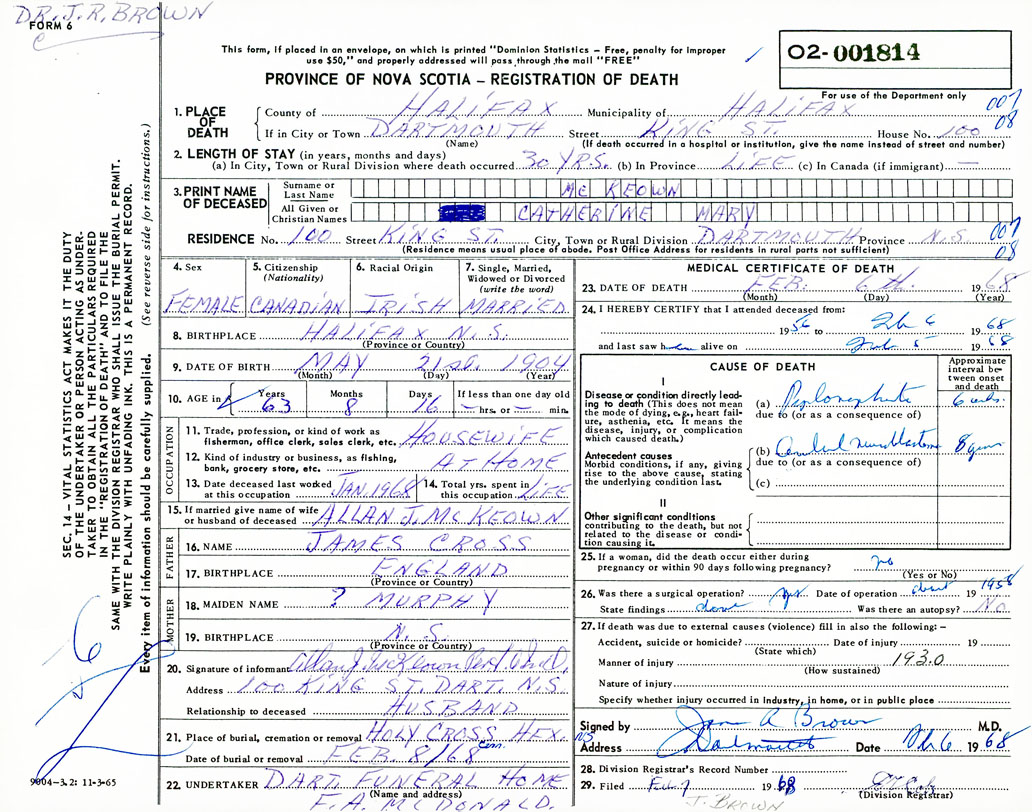 DR. J. R. BROWN
FORM 6
This form, if placed in an envelope, on which is printed "Dominion Statistics – Free, penalty for improper
use $50," and properly addressed will pass through the mail "FREE"
02-001814
For use of the Department only
PROVINCE OF NOVA SCOTIA – REGISTRATION OF DEATH
1. PLACE OF DEATH County of HALIFAX Municipality of HALIFAX 007
If in City or Town DARTMOUTH Street KING ST. House No. 100 08
(Name) (If death occurred in a hospital or institution, give the name instead of street and number)
2. LENGTH OF STAY (in years, months and days)
(a) In City, Town or Rural Division where death occurred 30 YRS. (b) In Province LIFE (c) In Canada (if immigrant) —
3. PRINT NAME OF DECEASED
Surname or Last Name MC KEOWN
All Given or Christian Names CATHERINE MARY
RESIDENCE No. 100 Street KING ST. City, Town or Rural Division DARTMOUTH Province N.S. 007
(Residence means usual place of abode. Post Office Address for residents in rural parts not sufficient) 08
SEC. 14 – VITAL STATISTICS ACT MAKES IT THE DUTY
OF THE UNDERTAKER OR PERSON ACTING AS UNDER-
TAKER TO OBTAIN ALL THE PARTICULARS REQUIRED
IN THE "REGISTRATION OF DEATH" AND TO FILE THE
SAME WITH THE DIVISION REGISTRAR WHO SHALL ISSUE THE BURIAL PERMIT.
WRITE PLAINLY WITH UNFADING INK. THIS IS A PERMANENT RECORD.
Every item of information should be carefully supplied. (See reverse side for instructions.)
4. Sex FEMALE
5. Citizenship (Nationality) CANADIAN
6. Racial Origin IRISH
7. Single, Married, Widowed or Divorced (write the word) MARRIED
8. BIRTHPLACE HALIFAX N.S.
(Province or Country)
9. DATE OF BIRTH MAY 21st. 1904
(Month) (Day) (Year)
10. AGE in Years 63 Months 8 Days 16 If less than one day old — hrs. or — min.
OCCUPATION
11. Trade, profession, or kind of work as fisherman, office clerk, sales clerk, etc. HOUSEWIFE
12. Kind of industry or business, as fishing, bank, grocery store, etc. AT HOME
13. Date deceased last worked at this occupation JAN. 1968 14. Total yrs. spent in this occupation LIFE
15. If married give name of wife or husband of deceased ALLAN J. MC KEOWN
FATHER
16. NAME JAMES CROSS
17. BIRTHPLACE ENGLAND
(Province or Country)
MOTHER
18. MAIDEN NAME ? MURPHY
19. BIRTHPLACE N.S.
(Province or Country)
20. Signature of informant Allan J. McKeown
Address 100 KING ST. DART. N.S.
Relationship to deceased HUSBAND
21. Place of burial, cremation or removal HOLY CROSS HFX. Cem.
Date of burial or removal FEB. 8/68
22. UNDERTAKER DART. FUNERAL HOME
(Name and address)
F. A. MC DONALD.
9004–3.2: 11-3-65
MEDICAL CERTIFICATE OF DEATH
23. DATE OF DEATH FEB. 6th. 1968
(Month) (Day) (Year)
24. I HEREBY CERTIFY that I attended deceased from:
1956 to Feb 6 1968
and last saw alive on Feb 5 1968
CAUSE OF DEATH
Approximate interval between onset and death
I
Disease or condition directly leading to death (This does not mean the mode of dying, e.g., heart failure, asthenia, etc. It means the disease, injury, or complication which caused death.)
(a) Pyelonephritis 6 wks.
due to (or as a consequence of)
Antecedent causes
Morbid conditions, if any, giving rise to the above cause, stating the underlying condition last.
(b) 8 yrs
due to (or as a consequence of)
(c)
II
Other significant conditions contributing to the death, but not related to the disease or condition causing it.
25. If a woman, did the death occur either during pregnancy or within 90 days following pregnancy? no
(Yes or No)
26. Was there a surgical operation? yes Date of operation about 1958
State findings above Was there an autopsy? No
27. If death was due to external causes (violence) fill in also the following: –
Accident, suicide or homicide? Date of injury 19
(State which)
Manner of injury 1930
(How sustained)
Nature of injury
Specify whether injury occurred in industry, in home, or in public place
Signed by Brown M.D.
Address Dartmouth NS Date Feb 6 1968
28. Division Registrar's Record Number
29. Filed Feb 7 1968
(Division Registrar)
J. BROWN